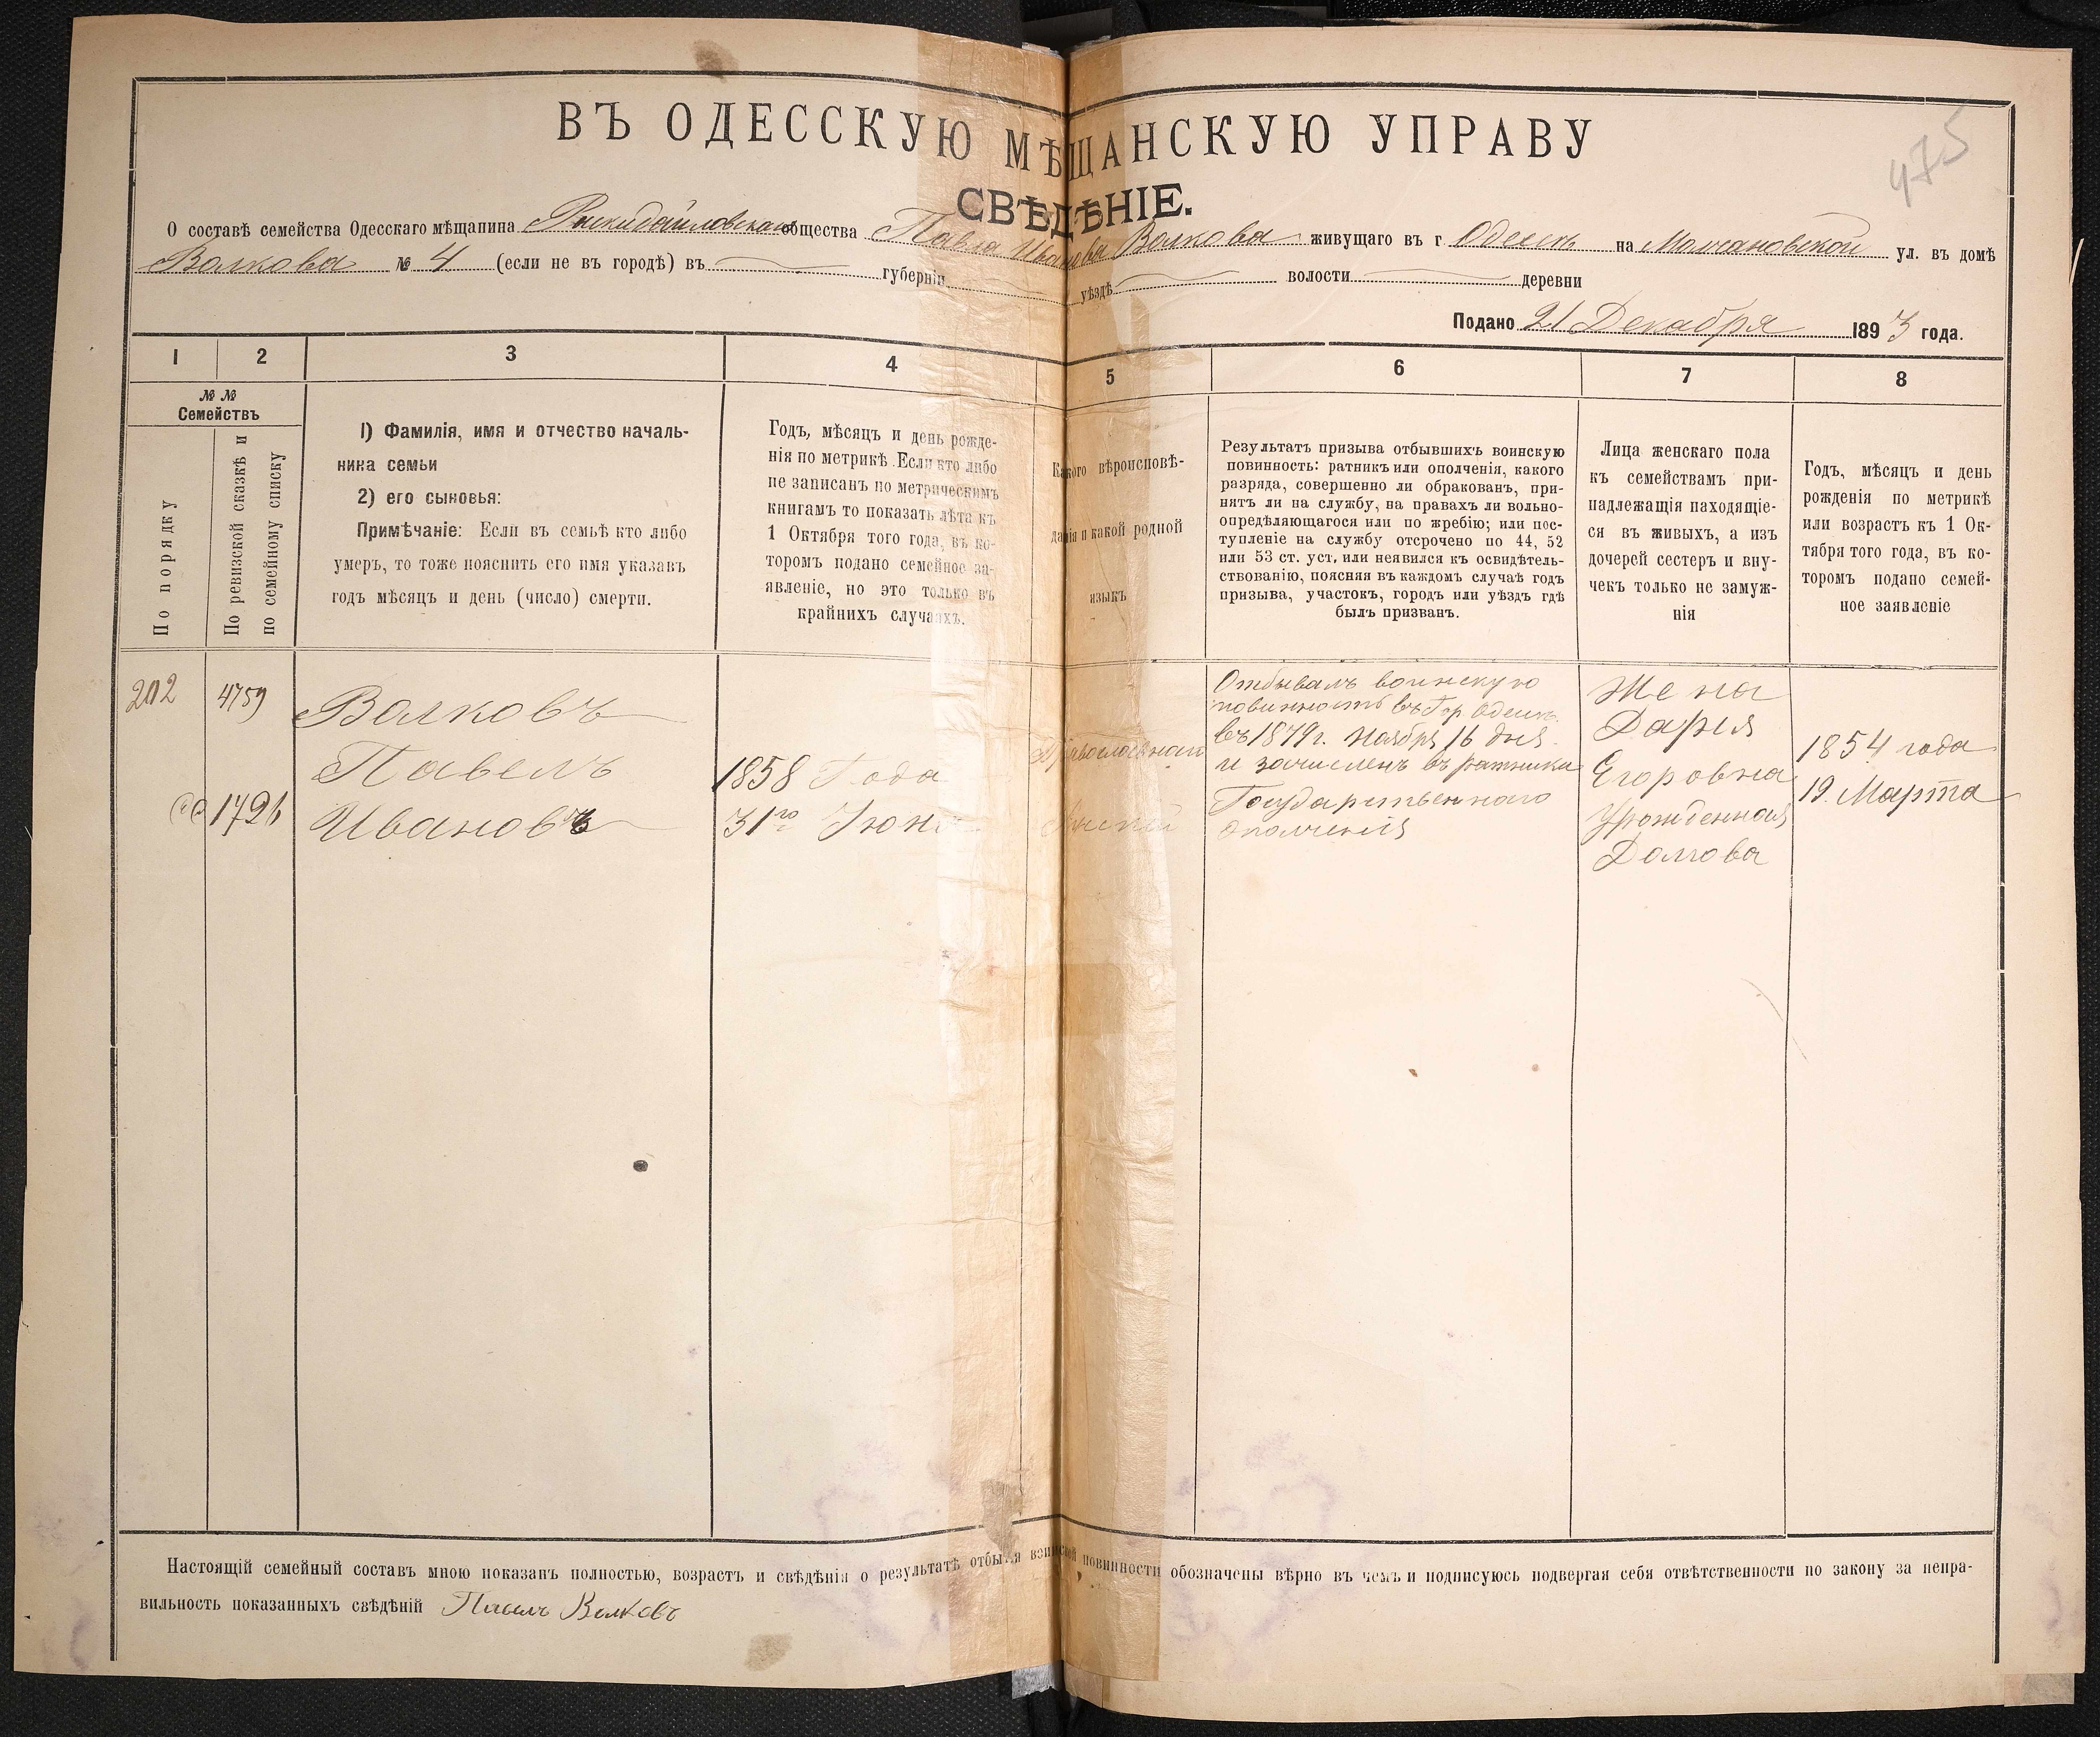 475
ВЪ ОДЕССКУЮ МѢЩАНСКУЮ УПРАВУ
СВѢДѢНІЕ.
О составѣ семейства Одесскаго мѣщанина общества Павла Иванова Волкова живущаго въ г Одессѣ на ул. въ домѣ
Волкова № 4 (если не въ городѣ) въ губерніи уѣздѣ волости деревни
Подано 21 Декабря 1893 года.
1 2 3 4 5 6 7 8
№ №
Семействъ
По порядку
По ревизской сказкѣ и
по семейному списку
1) Фамилія, имя и отчество началь-
ника семьи
2) его сыновья:
Примѣчаніе: Если въ семьѣ кто либо
умеръ, то тоже пояснить его имя указавъ
годъ мѣсяцъ и день (число) смерти.
Годъ, мѣсяцъ и день рожде-
нія по метрикѣ. Если кто либо
не записанъ по метрическимъ
книгамъ то показать лѣта къ
1 Октября того года, въ ко-
торомъ подано семейное за-
явленіе, но это только въ
крайнихъ случаяхъ.
Какого вѣроисповѣ-
данія и какой родной
языкъ
Результатъ призыва отбывшихъ воинскую
повинность: ратникъ или ополченія, какого
разряда, совершенно ли обракованъ, при-
нятъ ли на службу, на правахъ ли вольно-
опредѣляющагося или по жребію; или пос-
тупленіе на службу отсрочено по 44, 52
или 53 ст. уст. или неявился къ освидѣтель-
ствованію, поясняя въ каждомъ случаѣ годъ
призыва, участокъ, городъ или уѣздъ гдѣ
былъ призванъ.
Лица женскаго пола
къ семействамъ при-
надлежащія находящіе-
ся въ живыхъ, а изъ
дочерей сестеръ и вну-
чекъ только не замуж-
нія
Годъ, мѣсяцъ и день
рожденія по метрикѣ
или возрастъ къ 1 Ок-
тября того года, въ ко-
торомъ подано семей-
ное заявленіе
202 4759
1796
Волковъ
Павелъ
Ивановъ
1858 Года
31го Іюня
Православнаго
Отбывалъ воинскую
повинность въ Гор. Одессѣ
въ 1879г. Ноября 16 дня
и зачисленъ въ ратники
Государственнаго
ополченія
Жена
Дарья
Егоровна
Урожденная
Долгова
1854 года
19. Марта
Настоящій семейный составъ мною показанъ полностью, возрастъ и свѣдѣнія о результатѣ отбытія воинской повинности обозначены вѣрно въ чемъ и подписуюсь подвергая себя отвѣтственности по закону за непра-
вильность показанныхъ свѣдѣній Павелъ Волковъ